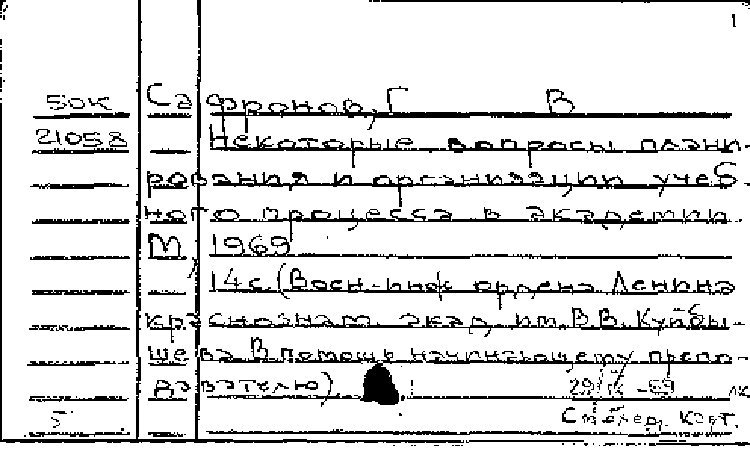 1
50К Сафронов, Г В
21058 Некоторые вопросы плани-
рования и организации учеб
ного процесса в академии.
М, 1969
14с (Воен-инж ордена Ленина
краснознам. акад. им. В.В. Куйбы-
шева В помощь начинающему препо-
давателю)
5